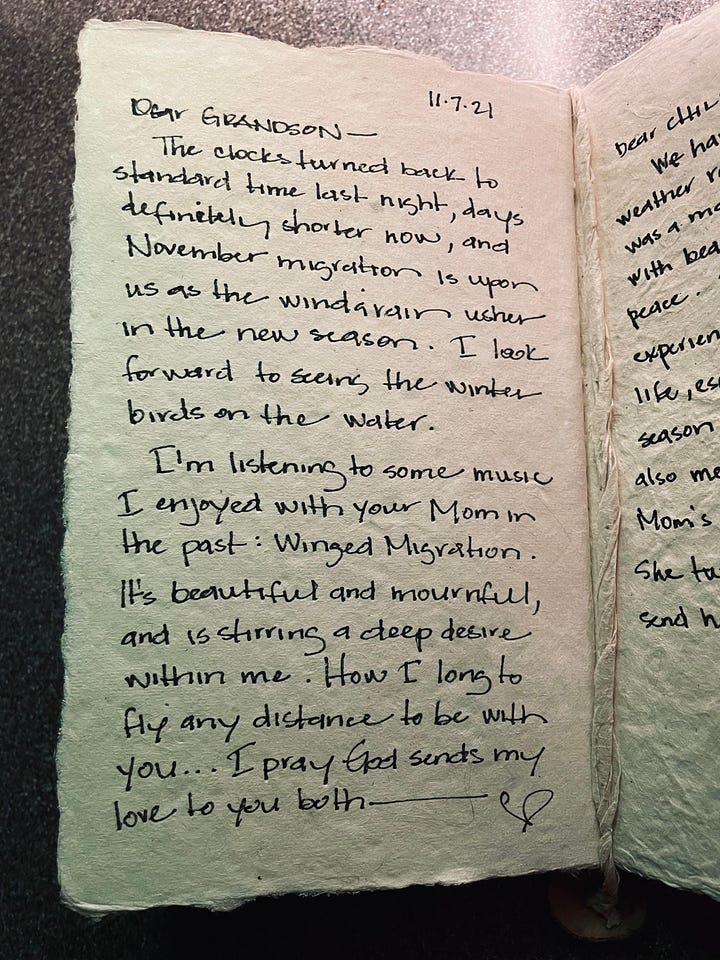 11.7.21
Dear GRANDSON—
The clocks turned back to
standard time last night, days
definitely shorter now, and
November migration is upon
us as the wind & rain usher
in the new season. I look
forward to seeing the winter
birds on the water.
I'm listening to some music
I enjoyed with your Mom in
the past: Winged Migration.
It's beautiful and mournful,
and is stirring a deep desire
within me. How I long to
fly any distance to be with
you... I pray God sends my
love to you both—
Dear
We
weather
was a
with
peace.
life,
season
also
Mom's
She
send